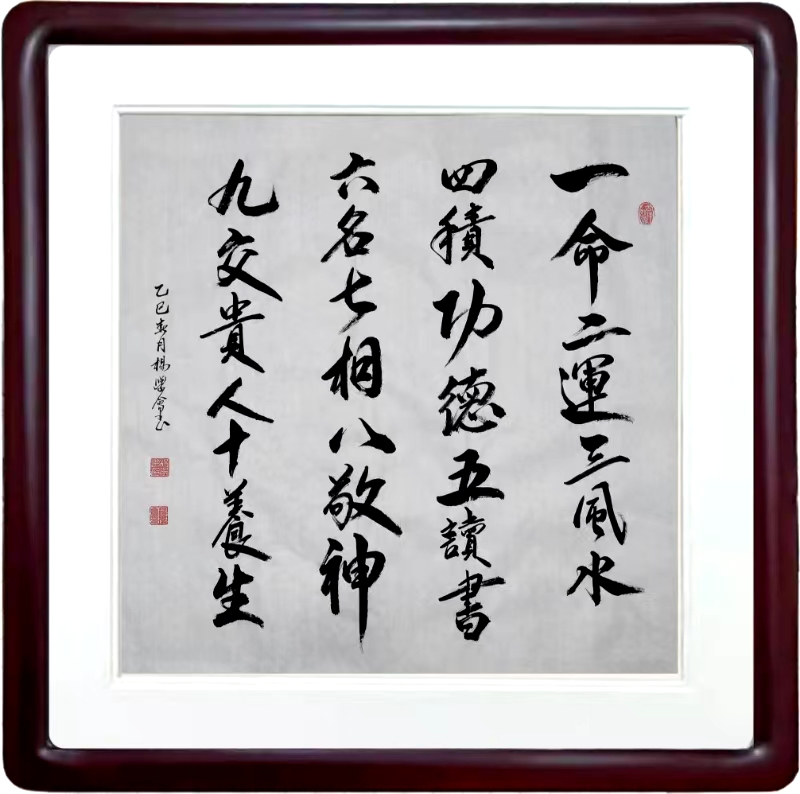 一命二運三風水
四積功德五讀書
六名七相八敬神
九交貴人十養生
乙巳春月楊